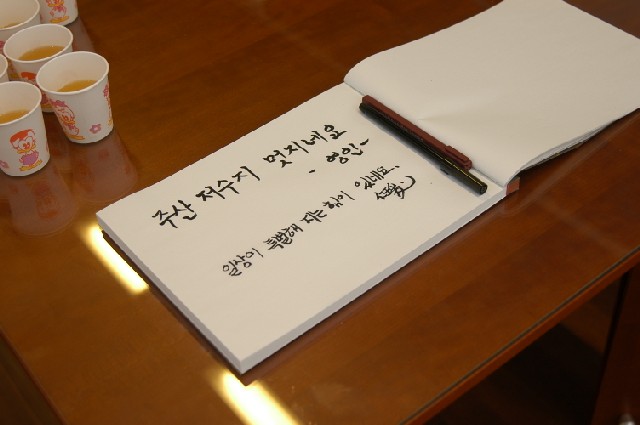 주산 저수지 멋지네요
- 영인 -
일상이 특별해 지는 힘이 있네요.